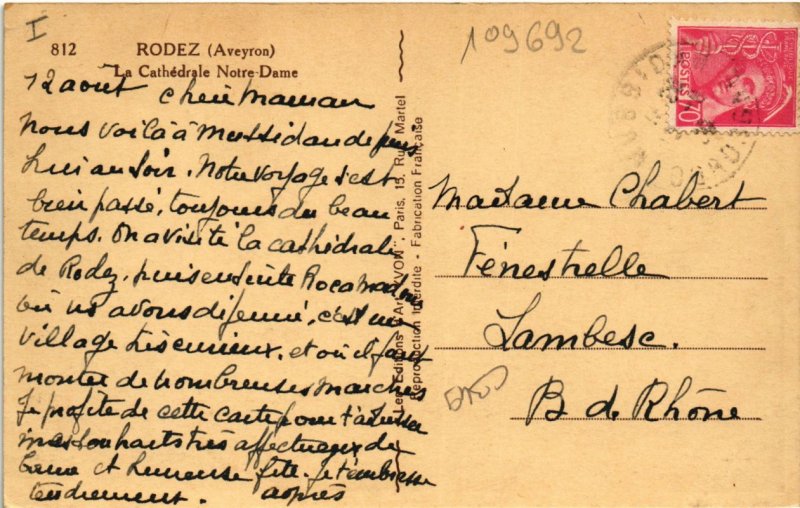 I
812 RODEZ (Aveyron)
La Cathédrale Notre-Dame
109692
12 août chère Maman
nous voilà à Mussidan depuis
hier au soir. Notre voyage s'est
bien passé, toujours du beau
temps. On a visité la cathédrale
de Rodez, puis ensuite Rocamadour
où ns avons déjeuné, c'est un
village très curieux, et où il faut
monter de nombreuses marches
Je profite de cette carte pour t'adresser
mes souhaits très affectueux de
bonne et heureuse fête. Je t'embrasse
tendrement.
Les Editions d'Art "YVON", Paris, 15, Rue Martel
Reproduction Interdite - Fabrication Française
POSTES
Madame Chabert
Fénestrelle
Lambesc.
B de Rhône